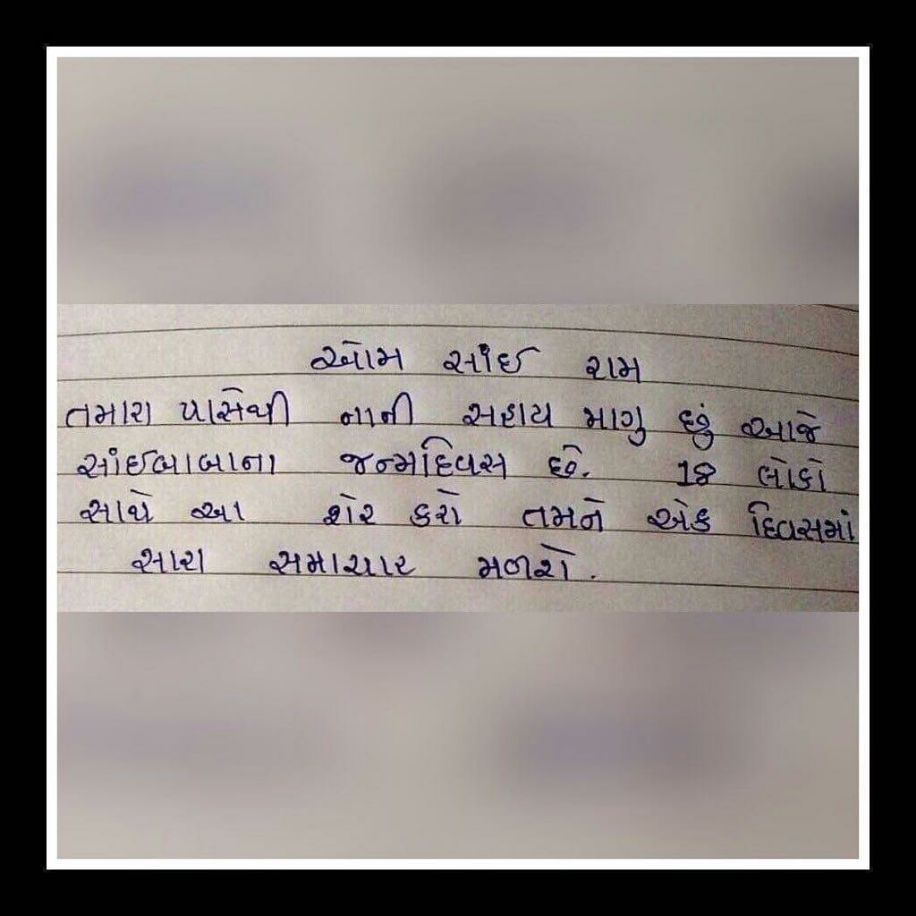 ઓમ સાંઈ રામ
તમારા પાસેથી નાની સહાય માગુ છું આજે
સાંઈબાબાના જન્મદિવસ છે. 18 લોકો
સાથે આ શેર કરો તમને એક દિવસમાં
સારા સમાચાર મળશે.